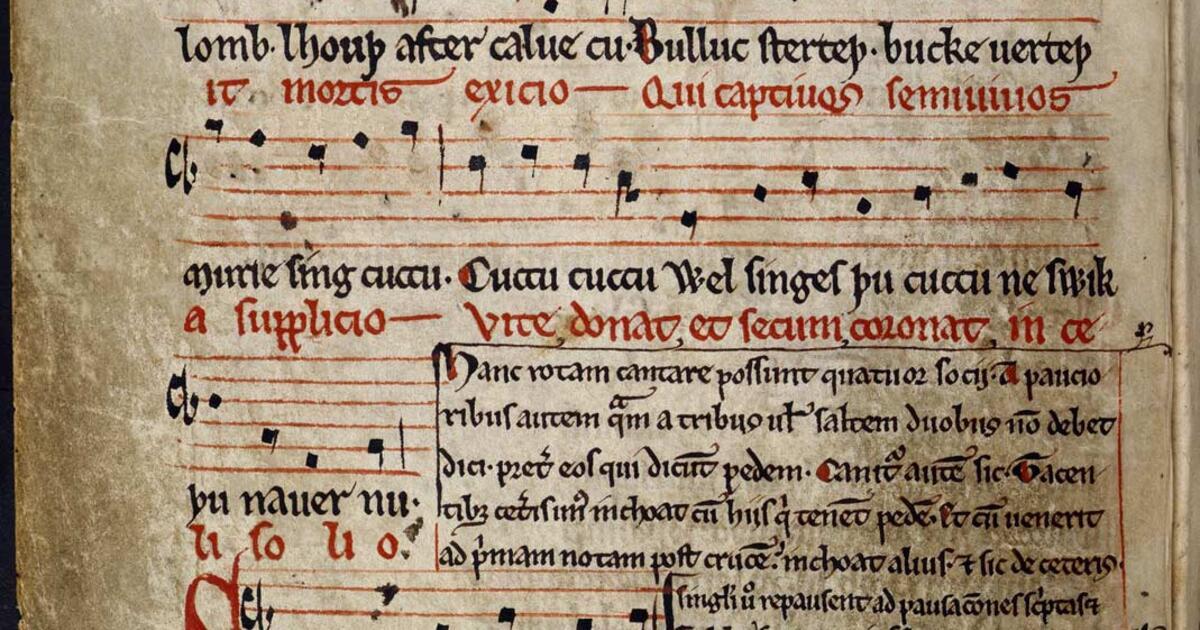 lomb· lhouþ after calue cu· Bulluc sterteþ· bucke uerteþ
it mortis exicio Qui captiuos semiuiuos
murie sing cuccu· Cuccu cuccu Wel singes þu cuccu ne swik
a supplicio Vite donat, et secum coronat, in ce
þu nauer nu·
li so li o.
Hanc rotam cantare possunt quatuor socij· A paucio
ribus autem qᵃm a tribus ul' saltem duobus nō debet
dici· pret' eos qui dicūt pedem· Canit᷑ autē sic· Tacen
tibꝫ cet'is un' inchoat cū hijs qⁱ tenēt pedē· Et cū uenerit
ad p'mam notam post crucē· inchoat alius· ⁊ sic de ceteris·
singli u' repausent ad pausacōnes sc'ptas ⁊